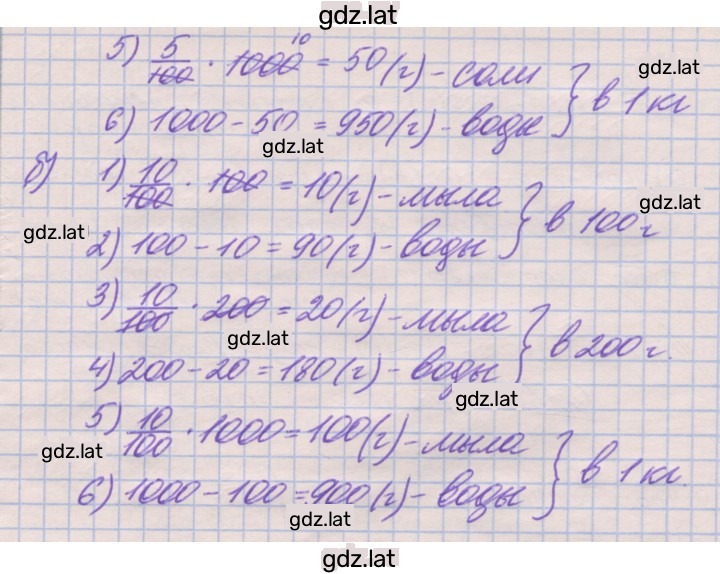 gdz.lat
5) 5/100 · 1000 10 = 50 (г) - соли
gdz.lat
6) 1000 - 50 = 950 (г) - воды } в 1 кг
gdz.lat
б) 1) 10/100 · 100 = 10 (г) - мыла
gdz.lat
2) 100 - 10 = 90 (г) - воды } в 100 г
gdz.lat
3) 10/100 · 200 = 20 (г) - мыла
gdz.lat
4) 200 - 20 = 180 (г) - воды } в 200 г.
gdz.lat
5) 10/100 · 1000 = 100 (г) - мыла
gdz.lat
6) 1000 - 100 = 900 (г) - воды } в 1 кг.
gdz.lat
gdz.lat